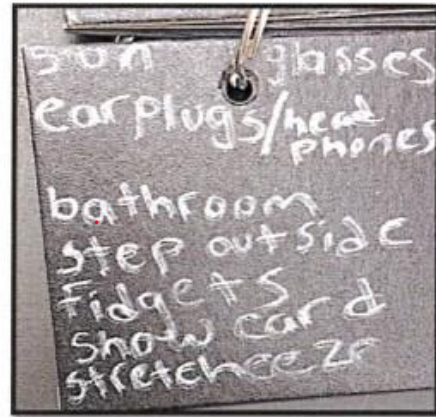 sun glasses
earplugs/head
phones
bathroom
step outside
fidgets
show card
stretcheeze